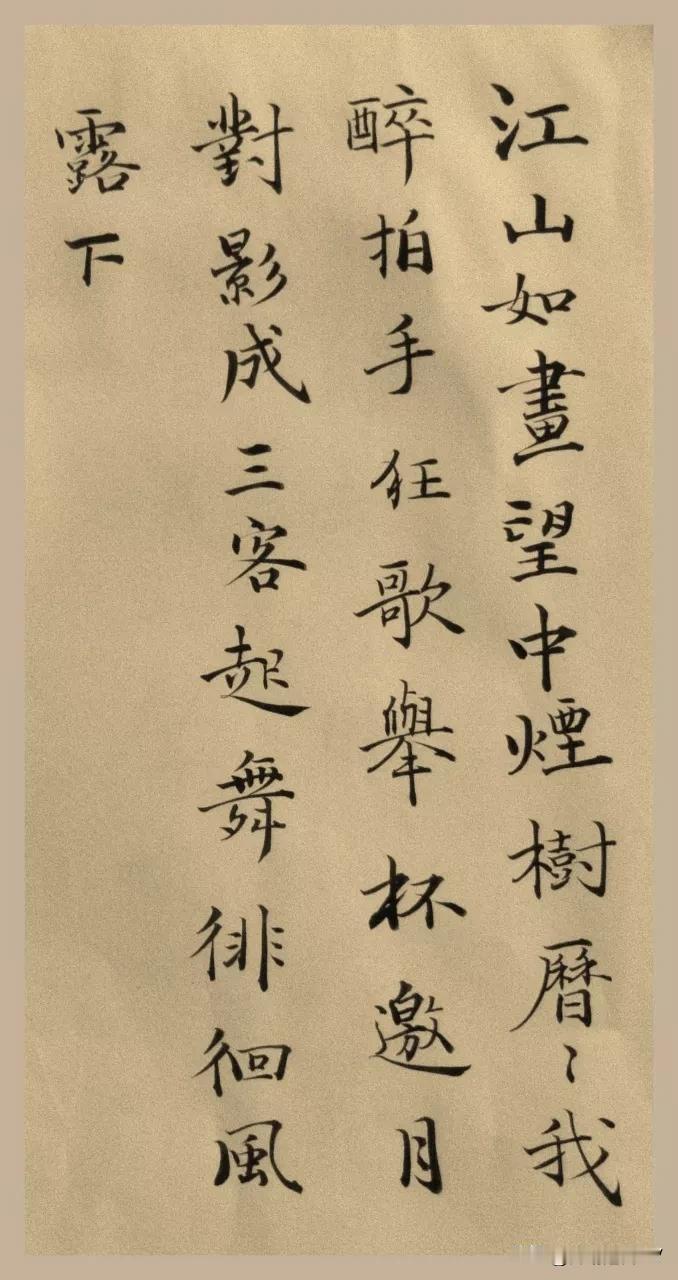 江山如畫望中煙樹曆〻我
醉拍手狂歌舉杯邀月
對影成三客起舞徘徊風
露下